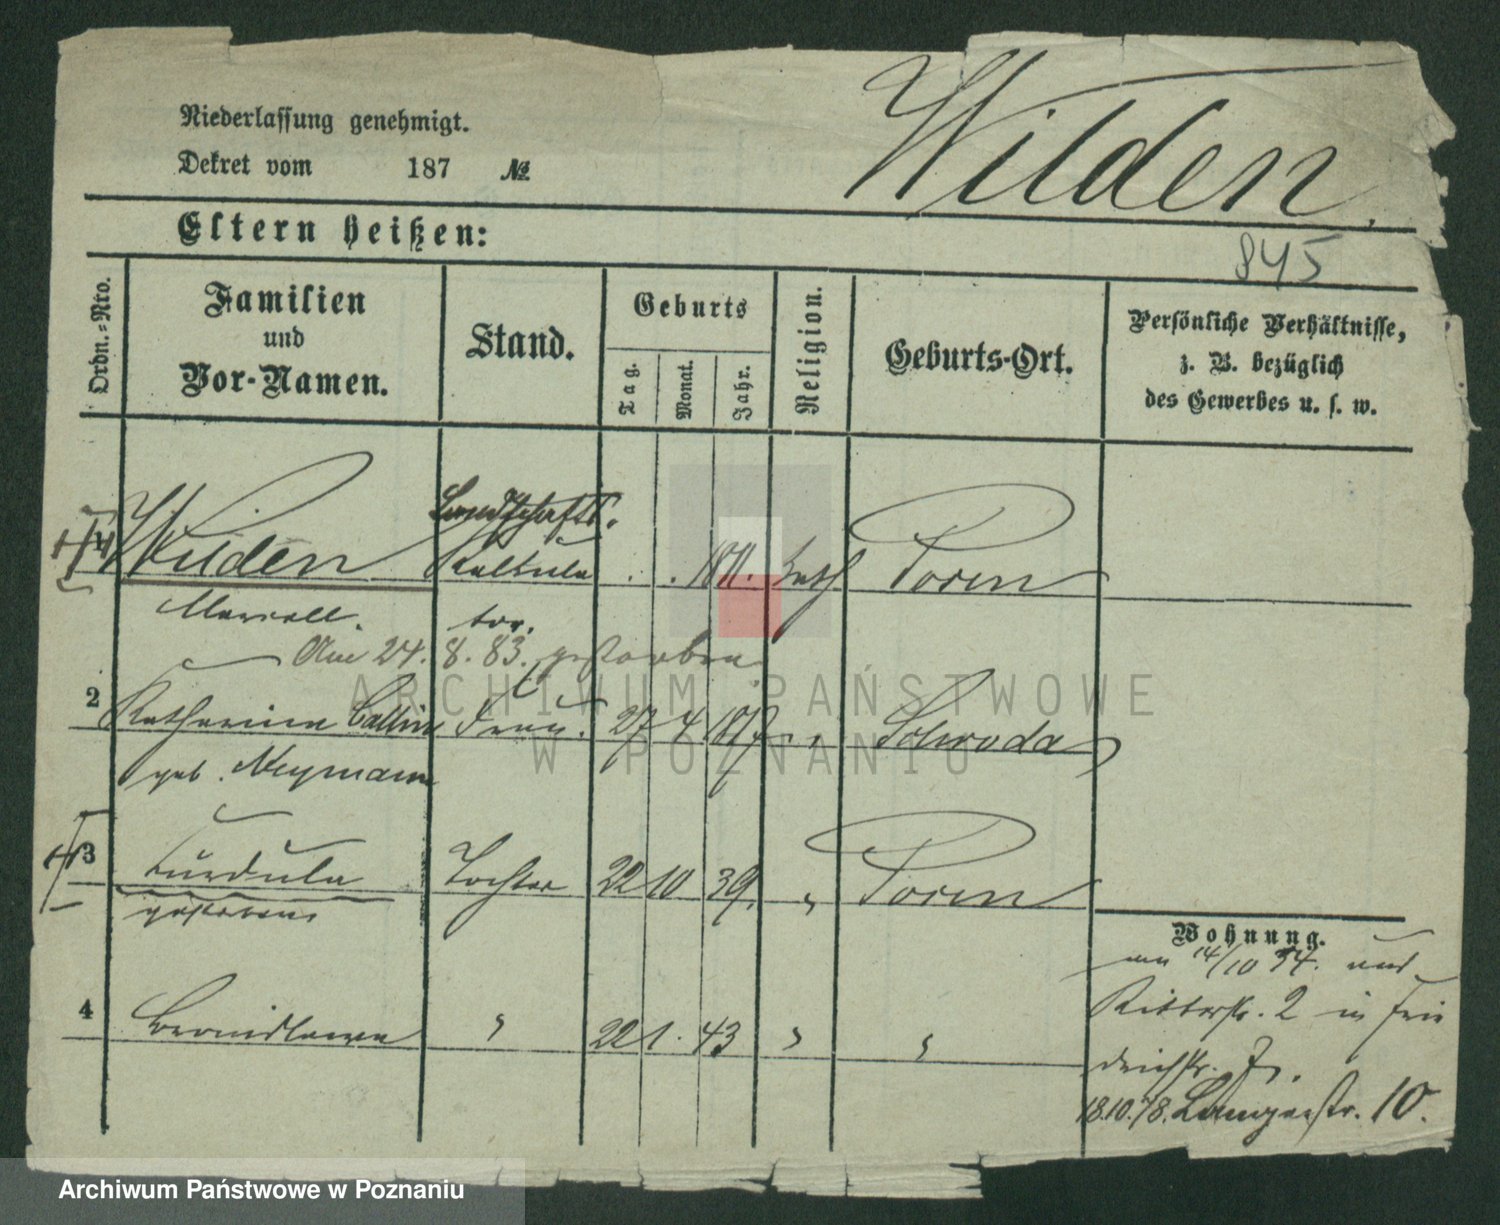 Niederlassung genehmigt.
Wilden
Dekret vom 187 №
Eltern heißen:
845
Ordn.-Nro.
Familien
und
Vor-Namen.
Stand.
Geburts
Tag.
Monat.
Jahr.
Religion.
Geburts-Ort.
Persönliche Verhältnisse,
z. B. bezüglich
des Gewerbes u. s. w.
Wilden Landschafts- Kalkula Kath Posen
Marcell. tor.
Am 24. 8. 83. gestorben
2 Katharina Frau. 27 4 Schroda
geb. Neymann
3 Kurdula Tochter 22 10 39. " Posen
gestorben
Wohnung.
14/10 74.
4 Bronislawa " 22 1. 43 " "
Ritterstr. 2 in Frie
drichstr. 7.
18.10.78. Langestr. 10.
ARCHIWUM PAŃSTWOWE
W POZNANIU
Archiwum Państwowe w Poznaniu